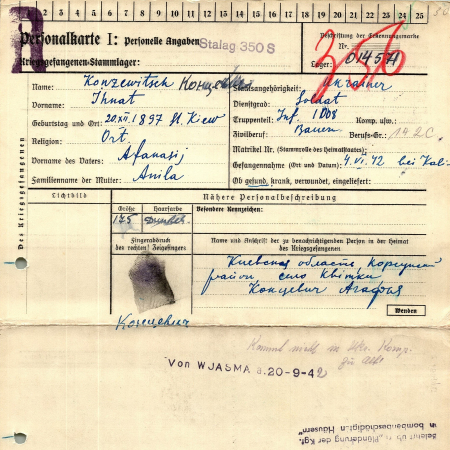 1 2 3 4 5 6 7 8 9 10 11 12 13 14 15 16 17 18 19 20 21 22 23 24 25
R
Personalkarte I: Personelle Angaben
Stalag 350 S
Kriegsgefangenen-Stammlager:
Beschriftung der Erkennungsmarke
Nr.
Lager: 01457
350
Des Kriegsgefangenen
Name: Konzewitsch
Vorname: Ihnat
Geburtstag und Ort: 20.XII.1897 Kiew
Religion: Ort.
Vorname des Vaters: Afanasij
Familienname der Mutter:
Staatsangehörigkeit: Ukrainer
Dienstgrad: Soldat
Truppenteil: Inf. 1008 Komp. usw.:
Zivilberuf: Bauer Berufs-Gr.:
Matrikel Nr. (Stammrolle des Heimatstaates):
Gefangennahme (Ort und Datum): 4.VI.42 bei
Ob gesund, krank, verwundet, eingeliefert:
Lichtbild
Nähere Personalbeschreibung
Größe
175
Haarfarbe
Dunkel
Besondere Kennzeichen:
Fingerabdruck
des rechten! Zeigefingers
Name und Anschrift der zu benachrichtigenden Person in der Heimat
des Kriegsgefangenen
Киевская область
район, село Квитки
Концевич Агафья
Wenden
Концевич
Kommt nicht in
Von WJASMA 20-9-42
Belehrt üb. „Plünderung der Kgf.
in bombenbeschädigten Häusern"